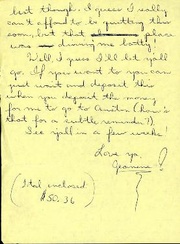 but though. I guess I really
can't afford to be quitting this
soon, but that place
was driving me batty!
Well, I guess I'll let y'all
go. If you want to you can
just wait and deposit this
when you deposit the money
for me to go to Austin. (how's
that for a subtle reminder?).
See y'all in a few weeks!
Love ya,
Jeannine
(Total enclosed
$50.36)